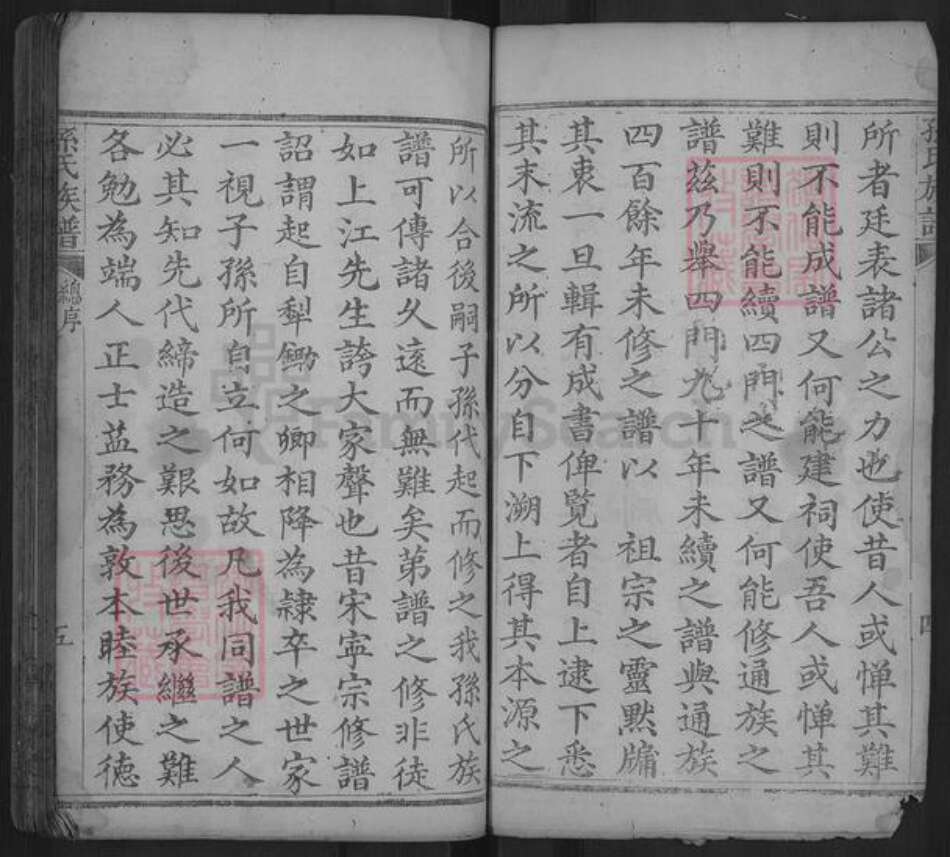 孫氏族譜
四
所者廷表諸公之力也使昔人或憚其難
則不能成譜又何能建祠使吾人或憚其
難則不能續四門之譜又何能修通族之
譜茲乃舉四門九十年未續之譜與通族
四百餘年未修之譜以　祖宗之靈默牖
其衷一旦輯有成書俾覽者自上逮下悉
其末流之所以分自下溯上得其本源之
所以合後嗣子孫代起而修之我孫氏族
譜可傳諸久遠而無難矣第譜之修非徒
如上江先生誇大家聲也昔宋寧宗修譜
詔謂起自犁鋤之卿相降為隸卒之世家
一視子孫所自立何如故凡我同譜之人
必其知先代締造之艱思後世承繼之難
各勉為端人正士益務為敦本睦族使德
孫氏族譜
總序
五
FamilySearch